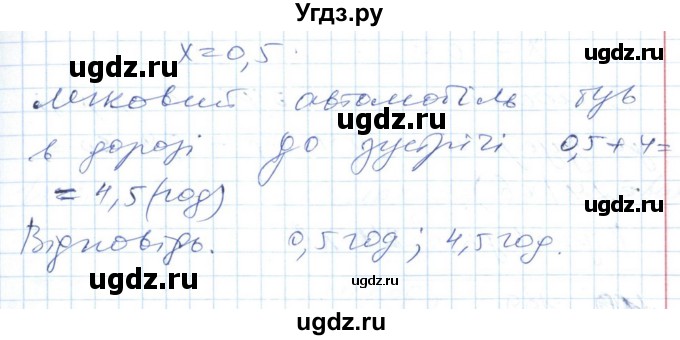 Угдз.ру
x=0,5.
ugdz.ru ugdz.ru
Легковий автомобіль був
ugdz.ru
в дорозі до зустрічі 0,5+4=
ugdz.ru
= 4,5 (год)
ugdz.ru
Відповідь. 0,5 год; 4,5 год.
ugdz.ru
ugdz.ru
ugdz.ru